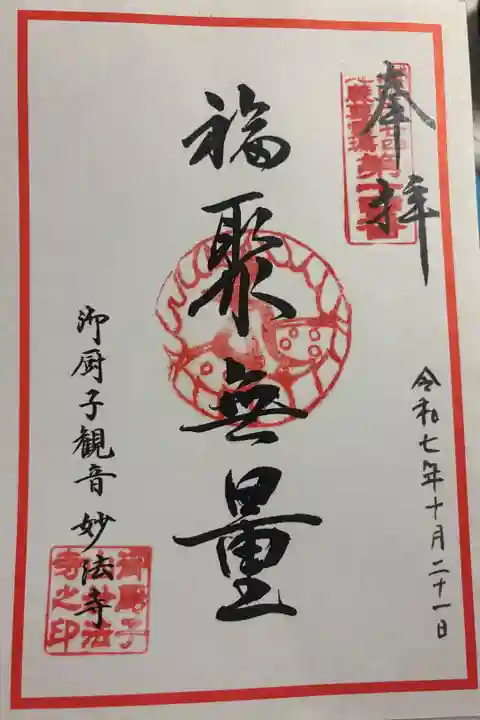 奉拝
令和七年十月二十一日
福聚無量
御厨子観音 妙法寺
御厨子
妙法
寺之印